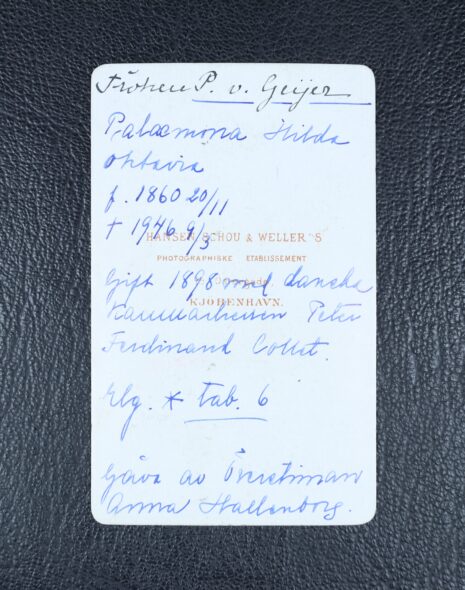 Fröken P. v. Geijer
Palaemona Hilda
Oktavia
f. 1860 20/11
† 1946 9/3
HANSEN SCHOU & WELLER'S
PHOTOGRAPHISKE ETABLISSEMENT
Gift 1898 med danska
KJØBENHAVN.
Kammarherren Peter
Ferdinand Collet.
Elg. * tab. 6
Gåva av Överstinnan
Anna Hallenborg.